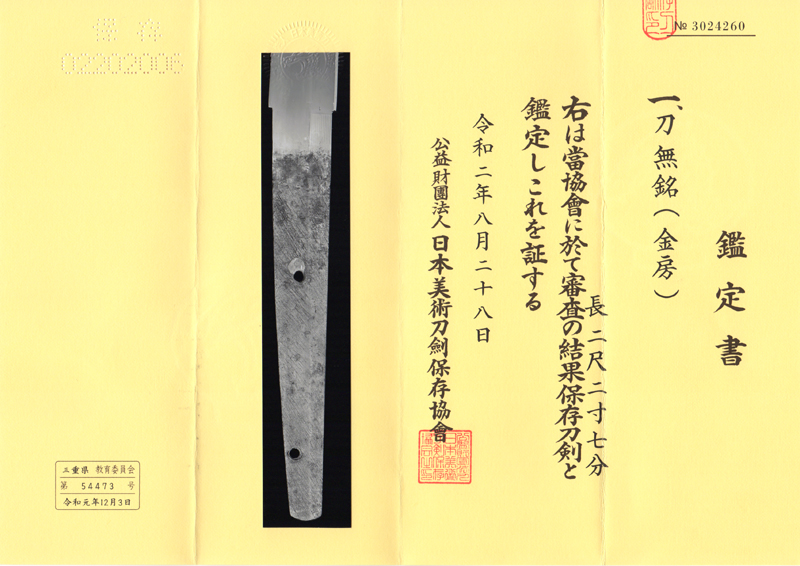 № 3024260
鑑定書
一、刀 無銘(金房)
長 二尺二寸七分
右は當協會に於て審査の結果保存刀剣と
鑑定しこれを証する
令和二年八月二十八日
公益財團法人日本美術刀劍保存協會
保存
02202006
三重県 教育委員会
第 54473 号
令和元年12月3日